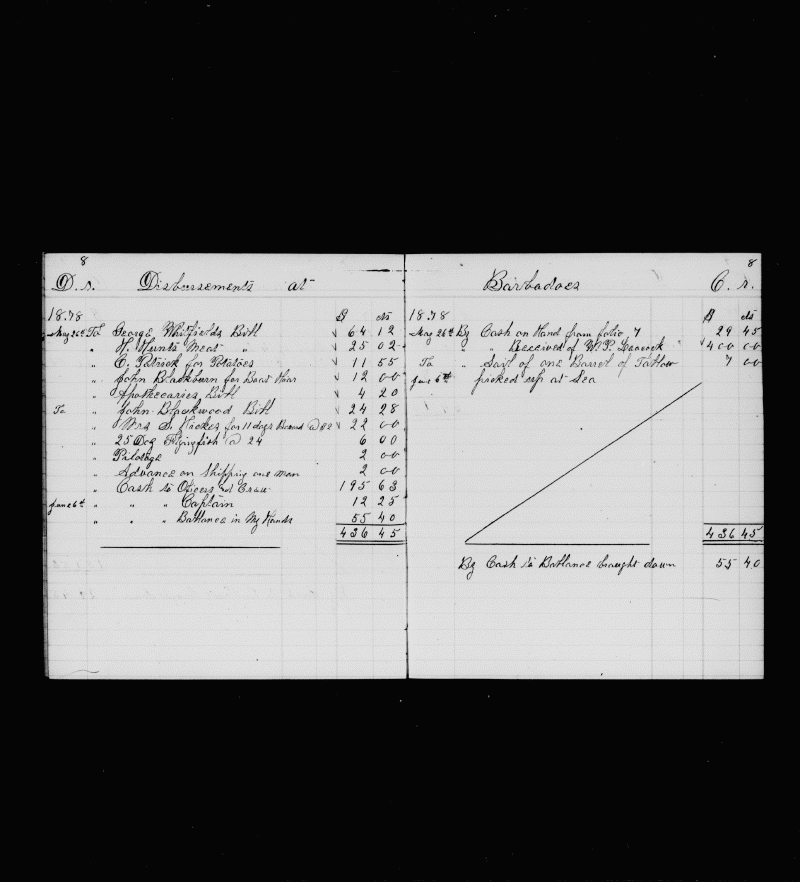 8
D.r. Disbursements at
1878 $ cts
May 26th To George Whitfields Bill √ 64 12
" H. Hunts Meat " √ 25 02
" C. Patrick for Potatoes √ 11 55
" John Blackburn for Boat Hoar √ 12 00
" Apothecaries Bill √ 4 20
To " John Blackwood Bill √ 24 28
" Mrs S. Hicks for 11 days Board @ $2 √ 22 00
" 25 Doz Flying fish @ 24 6 00
" Pilotage 2 00
" Advance on Shipping one man 2 00
" Cash to Officers and Crew 195 63
June 6th " " " Captain 12 25
" " " Ballance in My Hands 55 40
436 45
8
Barbadoes C.r.
1878 $ cts
May 26th By Cash on Hand from folio 7 29 45
" " Received of W.P. Leacock 400 00
To " Sail of one Barrel of Tallow 7 00
June 6th picked up at Sea
436 45
By Cash to Ballance braught down 55 40